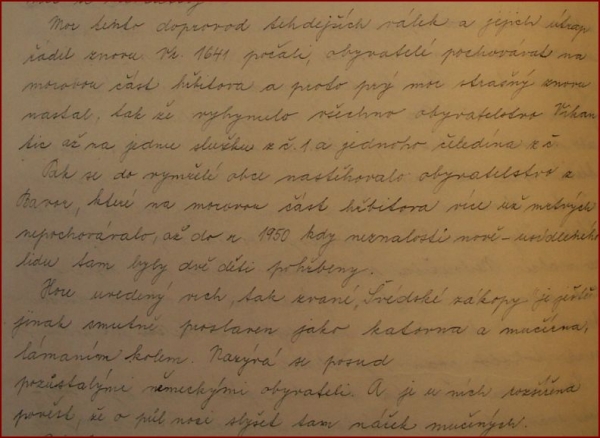 Mor tento doprovod tehdejších válek a jejich útrap
řádil znovu. Vr. 1641 počali, obyvatelé pochovávat na
morovou část hřbitova a proto prý mor strašný znovu
nastal, tak že vyhynulo všechno obyvatelstvo
tic až na jednu služku z č. 1 a jednoho čeledína z č
Pak se do vymřelé obce nastěhovalo obyvatelstvo z
Bavor, které na morovou část hřbitova více už mrtvých
nepochovávalo, až do r. 1950 kdy neznalostí nově-usídleného
lidu tam byly dvě děti pohřbeny.
Hore uvedený vrch, tak zvané, Švédské zákopy je ještě
jinak smutně proslaven jako katovna a mučírna,
lámaním kolem. Nazývá se posud
pozůstalými německými obyvateli. A je u nich rozšířena
pověst, že o půl noci slyšet tam nářek mučených.